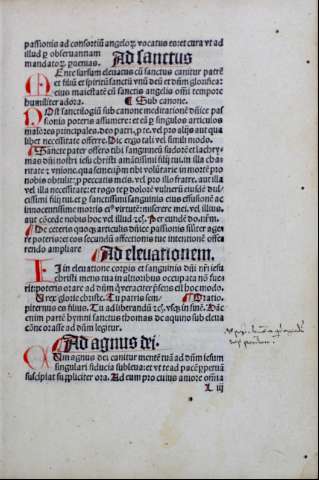 passionis ad consortiũ angeloꝝ vocatus es: et cura vt ad
illud ꝑ obseruantiam
mandatoꝝ ꝑuenias. Ad sanctus
MEnte sursum eleuatus cũ sanctus canitur patrẽ
et filiũ et spiritũ sanctũ vnũ deũ et dñm glorifica:
eius maiestatẽ cũ sanctis angelis oñi tempore
humiliter adora. ¶ Sub canone.
POst sanctilogiũ sub canone meditationẽ dñice pas
sionis poteris assumere: et eã ꝑ singulos articulos
maiores principales. deo patri, vel pro alijs aut qua
libet necessitate offerre. Dic ergo tali vel simili modo.
¶ Sancte pater offero tibi sanguineũ sudorẽ et lachry-
mas dñi nostri iesu christi amãtissimi filij tui. in illa cha
ritate et vnione. qua semetipm tibi voluntarie in mortẽ pro
nobis obtulit: ꝓ peccatis meis. vel pro illo fratre. aut illa
vel illa necessitate: et rogo te ꝑ dolorẽ vulnerũ eiusdẽ dul-
cissimi filij tui. et ꝑ sanctissimi sanguinis eius effusionẽ ac
innocentissime mortis virtutẽ: miserere mei. vel illius.
aut cõcede nobis hoc vel illud ⁊c̃. Per eundẽ do. nrm̃.
¶ De ceteris quoqꝫ articulis dñice passionis siliter age-
re poteris: et eos secundũ affectionis tue intentionẽ offe
rendo ampliare
Ad eleuationem.
IN eleuatione corpis et sanguinis dñi nr̃i iesu
christi mens tua in alnoribus occupata nõ fue-
rit: poteris orare ad dũm ꝗueraciter p̃sens est hoc modo.
O rex glorie christe. Tu patris sem- ¶ Oratio.
piternus es filius. Tu ad liberandũ ⁊c̃. vsqꝫ in finẽ. Dãc
enim partẽ hymni sanctus thomas de aquino sub eleua
tiõe orasse ad dũm legitur.
¶ Ad agnus dei.
CUm agnus dei canitur mentẽ tuã ad dñm iesum
singulari fiducia subleua: et vt tead pacẽ ppetuã
suscipiat suppliciter ora. Ad cum pro cuius amore omnia
L iij